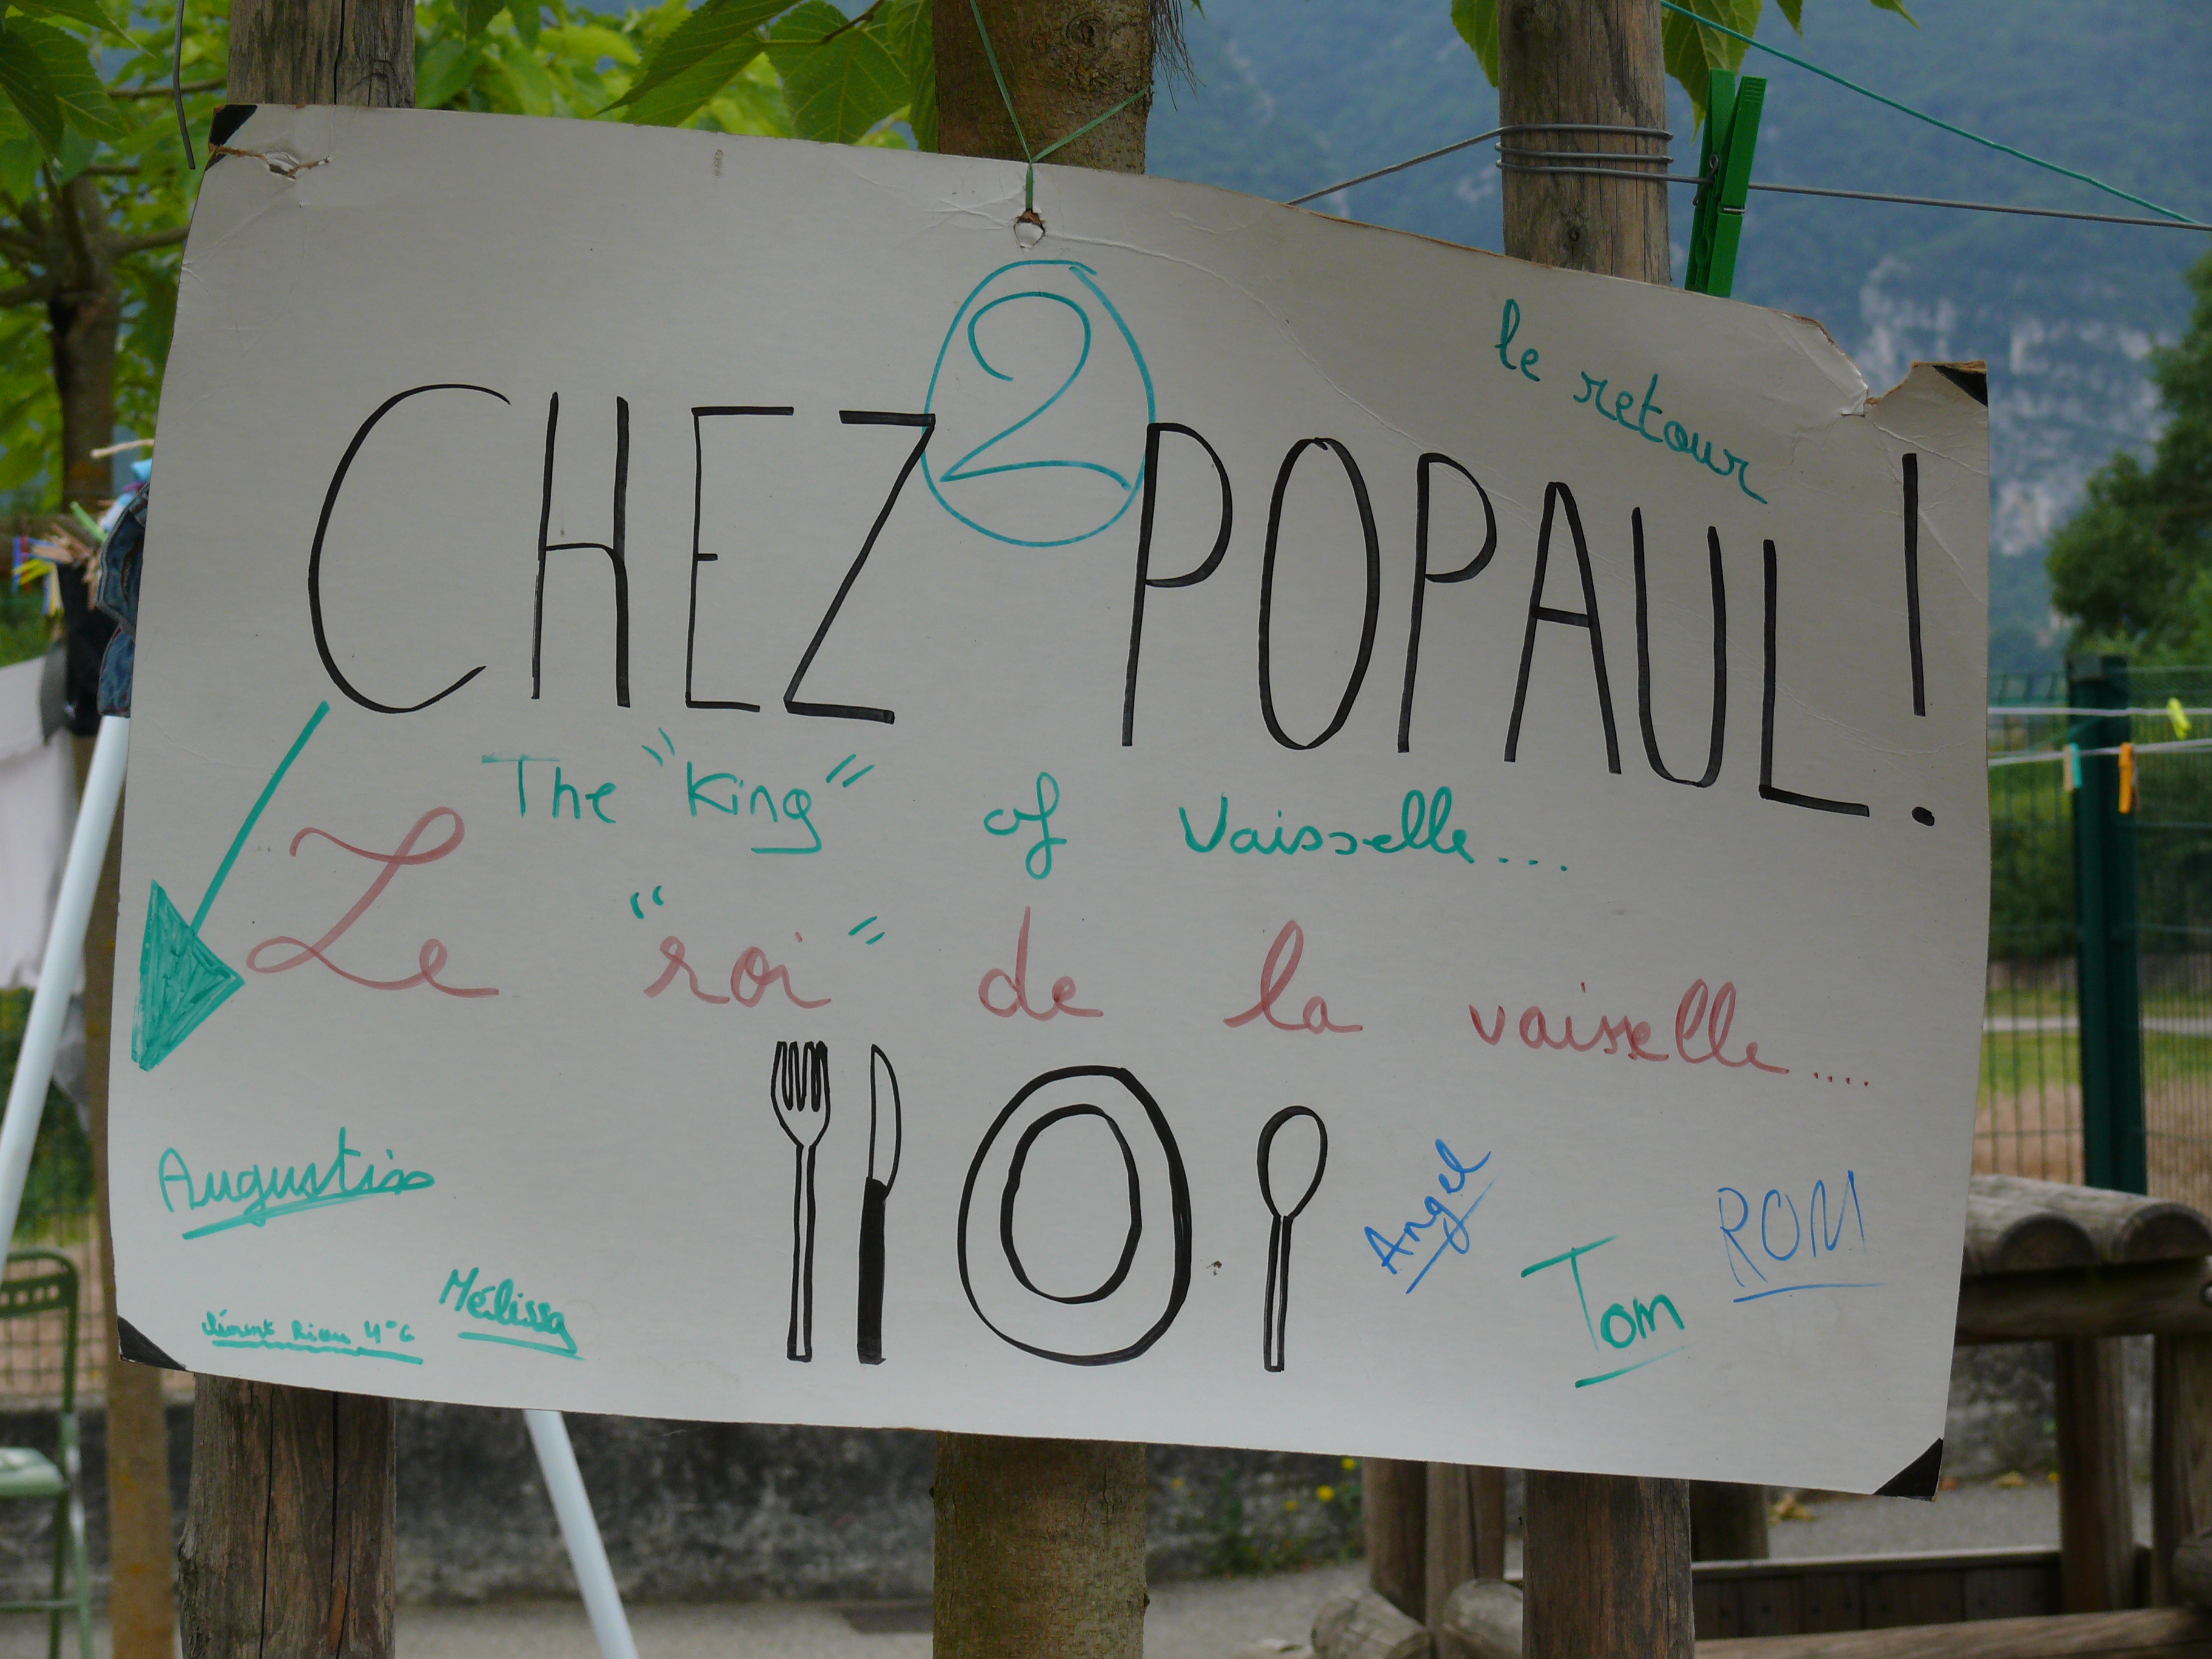 2
le retour
CHEZ POPAUL!
The "King" of Vaisselle....
Le "roi" de la vaisselle....
Augustin
Angel
ROM
Mélissa
Tom
4°6